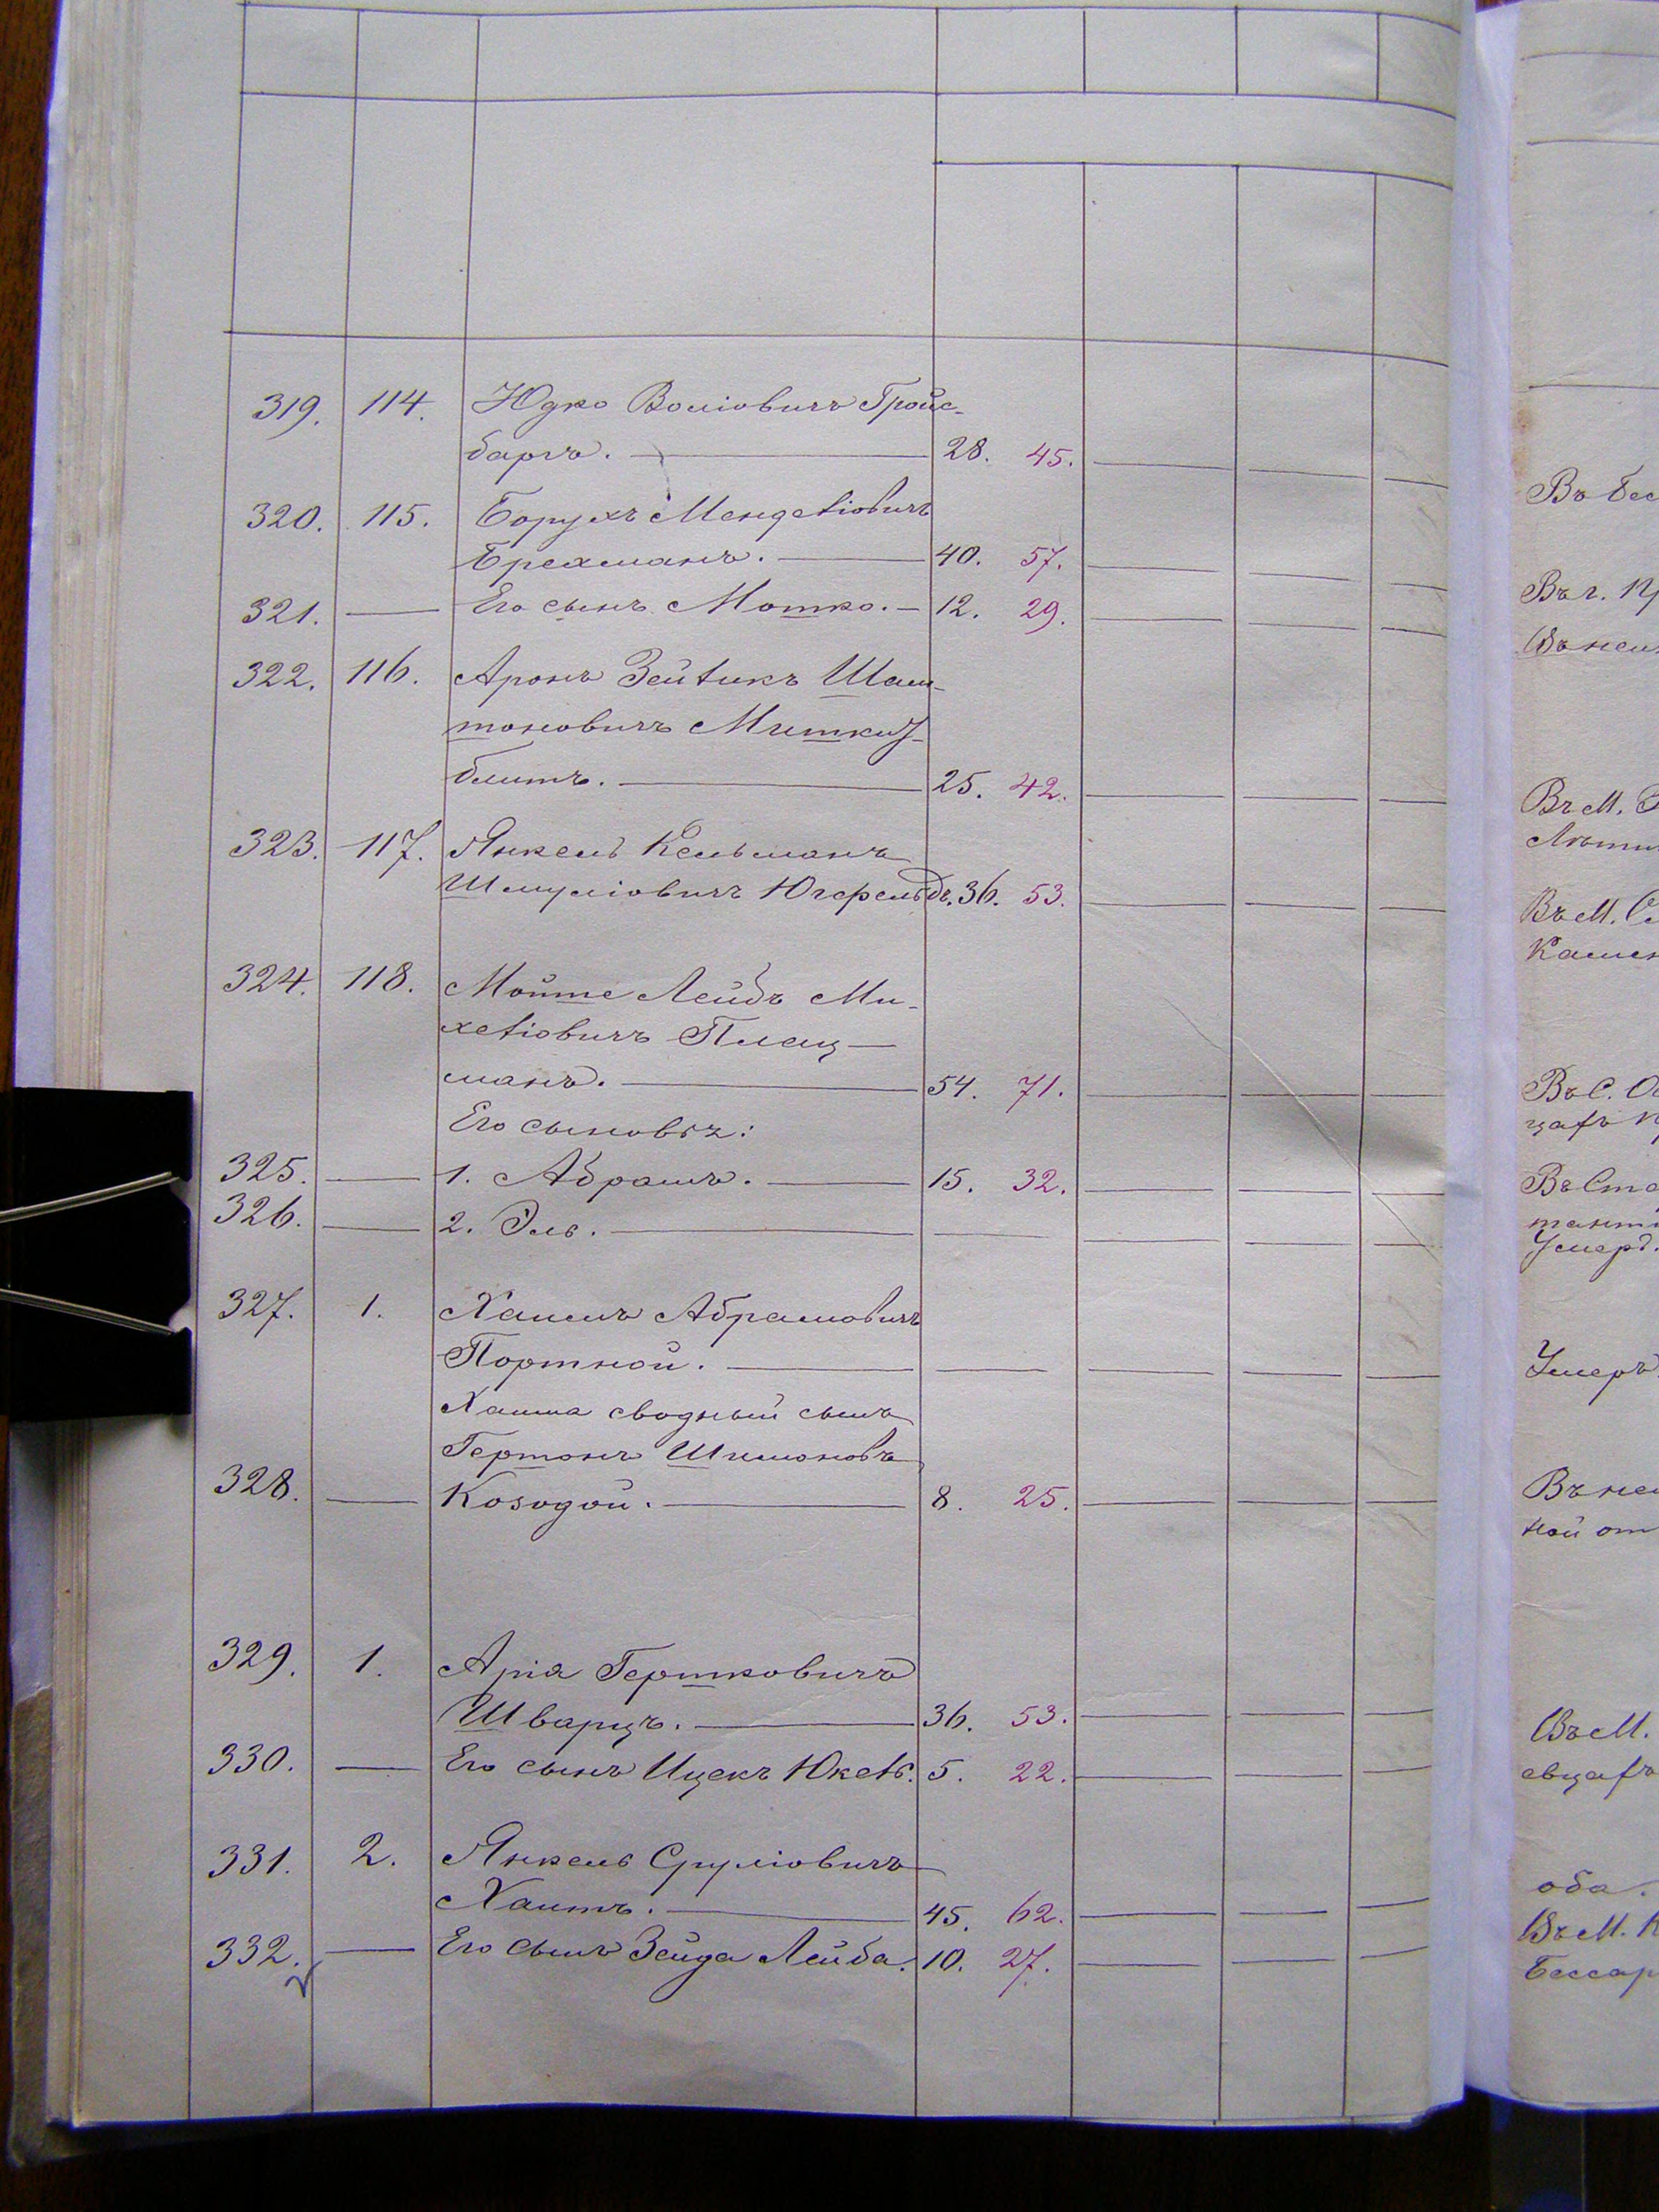 319. 114. Юдко Воліовичъ Гройс-
баргъ. 28. 45.
320. 115. Борухъ Менделіовичъ
Брехманъ. 40. 57.
321. — Его сынъ Мотко. — 12. 29.
322. 116. Аронъ Зейликъ Шам-
шоновичъ
блитъ. 25. 42.
323. 117. Янкель Кельманъ
Шмуліовичъ Югфельдъ. 36. 53.
324. 118. Мойше Лейбъ Ми-
хеліовичъ Плец-
манъ. 54. 71.
Его сыновья:
325. — 1. Абрамъ. 15. 32.
326. — 2. Эль.
327. 1. Хаимъ Абрамовичъ
Портной.
Хаима сводный сынъ
Гершонъ Шимоновъ
328. — Козодой. 8. 25.
329. 1. Арія Гершковичъ
Шварцъ. 36. 53.
330. — Его сынъ Ицекъ Юкель. 5. 22.
331. 2. Янкель Сруліовичъ
Хаитъ. 45. 62.
332. — Его сынъ Зейда Лейба. 10. 27.
Въ бес
Въ г.
Въ М.
Въ М.
Камен
Въ С.
Умеръ.
Умеръ.
ной от
Въ М.
оба.
Въ М. К
Бессар